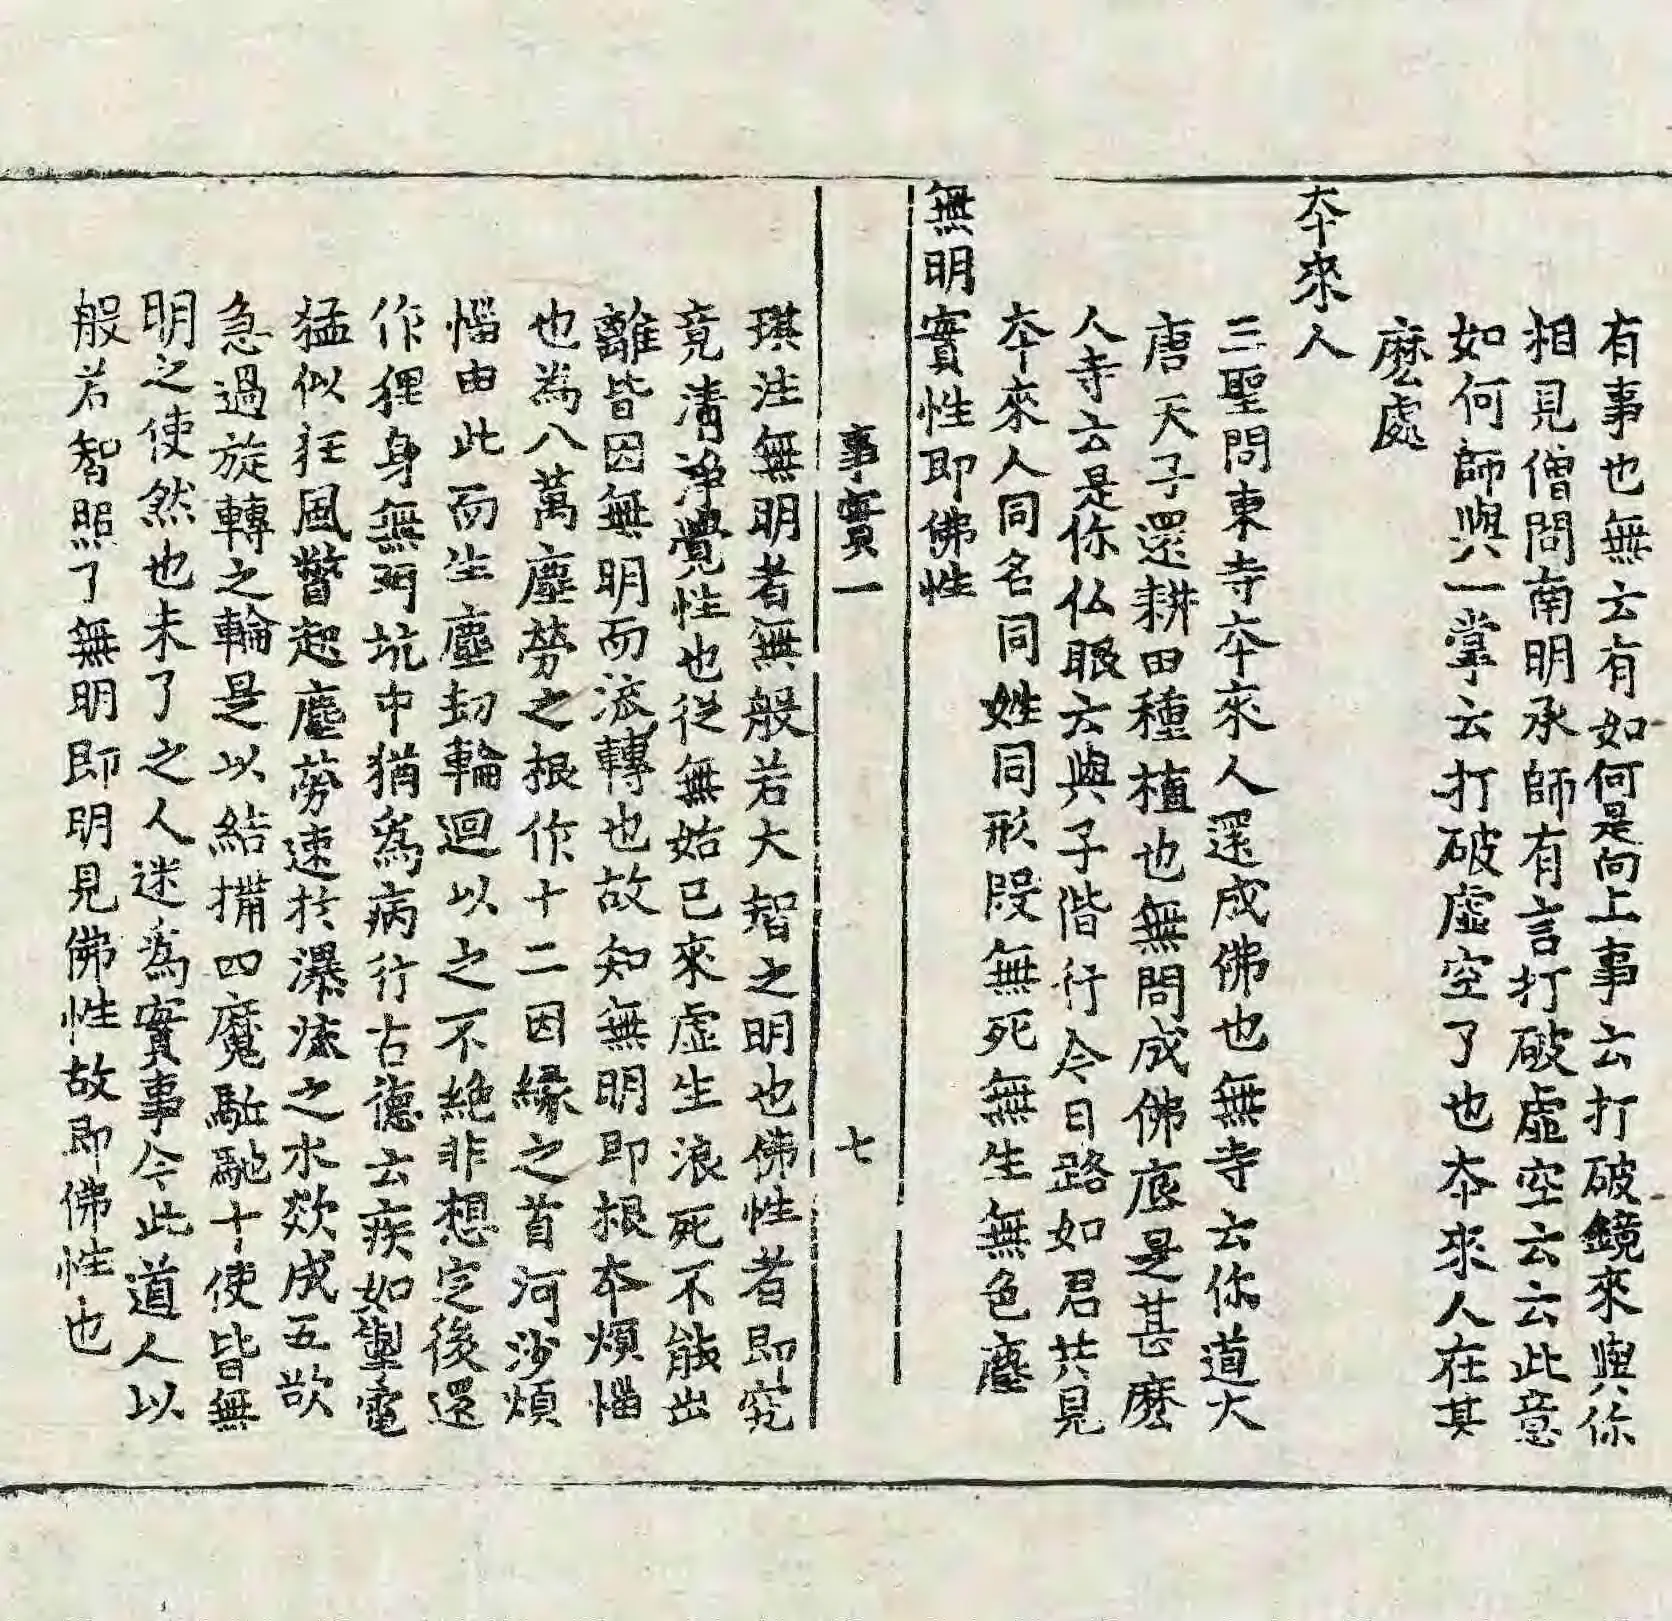 有事也無云有如何是向上事云打破鏡來與你
相見僧問南明承師有言打破虛空云云此意
如何師與一掌云打破虛空了也夲來人在甚
麽處
夲來人
三聖問東寺夲來人還成佛也無寺云你道大
唐天子還耕田種𥢶也無問成佛底是甚麽
人寺云是你仏眼云與子偕行今日路如君共見
夲來人同名同姓同形段無死無生無色塵
無明實性即佛性
事實一　七
琪注無明者無般若大智之明也佛性者即究
竟清淨覺性也從無始已來虛生浪死不能出
離皆因無明而流轉也故知無明即根夲煩惱
也為八萬塵勞之根作十二因緣之首河沙煩
惱由此而生塵劫輪迴以之不絶非想定後還
作狸身無門坑中猶為病行古德云疾如掣電
猛似狂風瞥起塵勞速於瀑流之水欻成五欲
急過旋轉之輪是以結搆四魔駈馳十使皆無
明之使然也未了之人迷為實事今此道人以
般若智照了無明即明見佛性故即佛性也